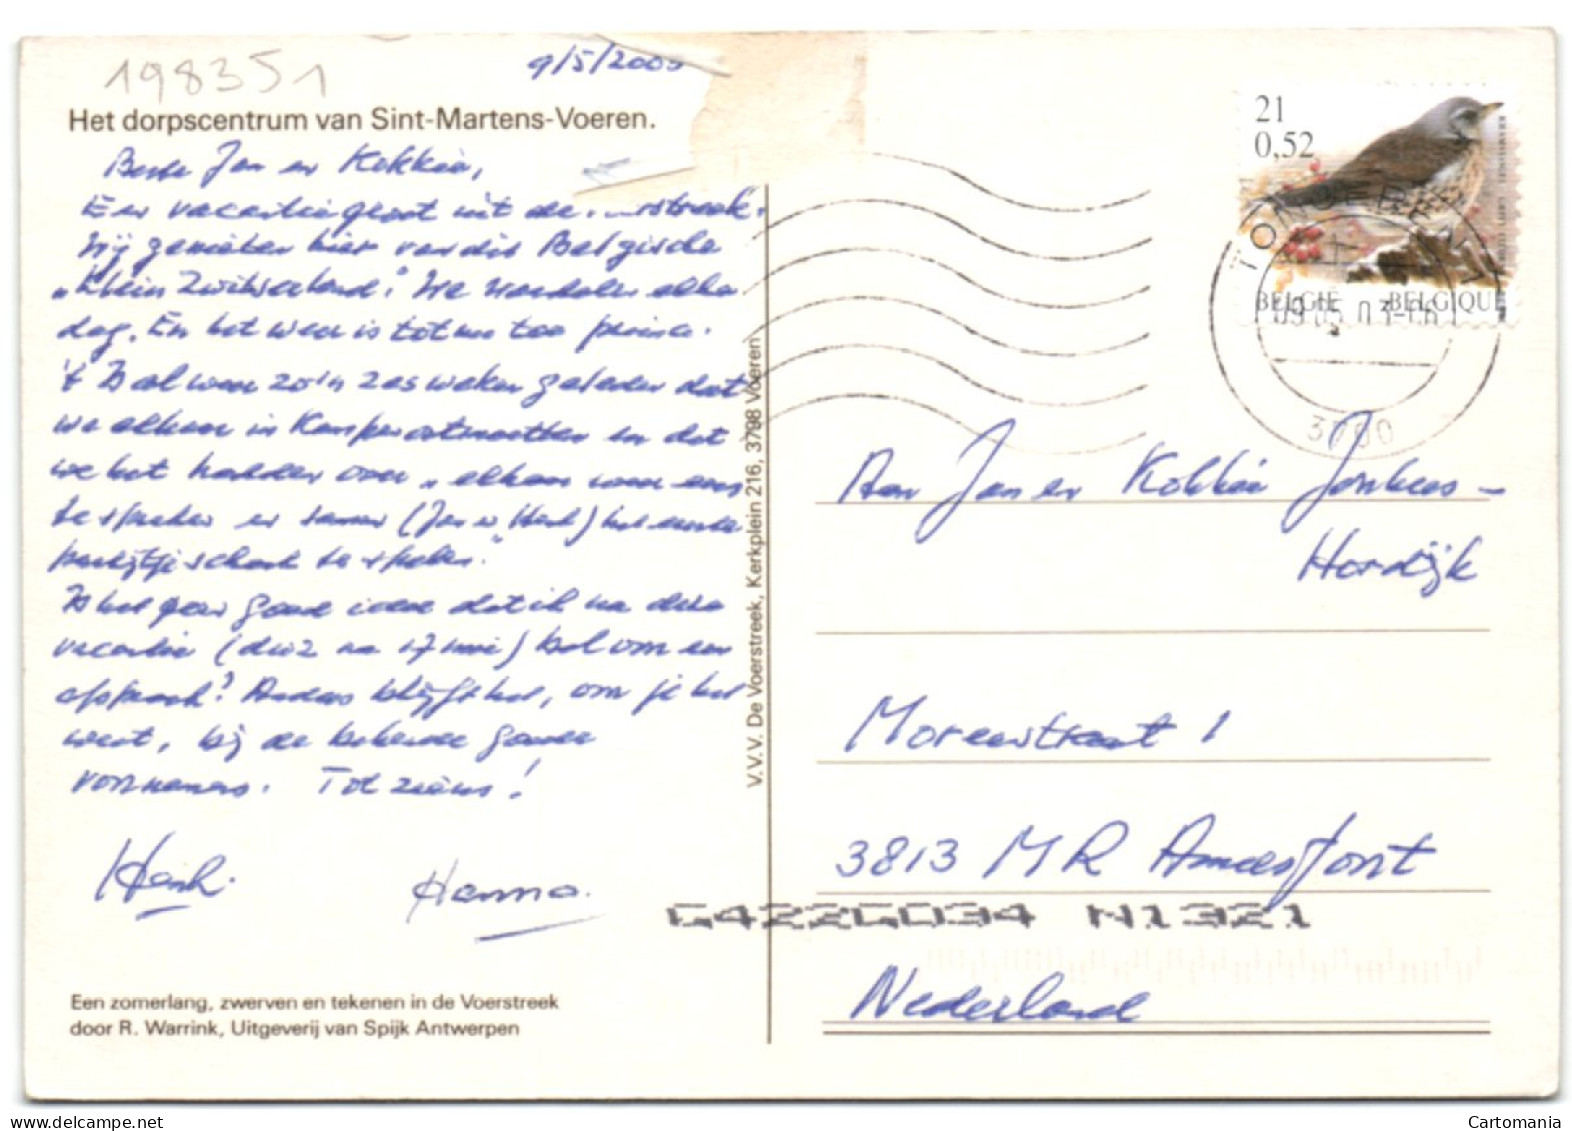 198351
9/5/2003
Het dorpscentrum van Sint-Martens-Voeren.
Beste Jan en Kokkie,
Een vacantiegroet uit de
Wij genieten hier van dit Belgische
„Klein Zwitserland". We wandelen elke
dag. En het weer is tot nu toe prima.
't Is al weer zo'n zes weken geleden dat
we elkaar in ontmoetten en dat
we het hadden over „elkaar weer eens
te spreken en samen (Jan en Henk) het eerste
partijtje schaak te spelen."
Is het geen goed idee dat ik na deze
vacantie (dus na 17 mei) bel om een
afspraak? Anders blijft het, om je het
weet, bij de bekende goede
voornemens. Tot ziens!
Henk. Hanna.
Een zomerlang, zwerven en tekenen in de Voerstreek
door R. Warrink, Uitgeverij van Spijk Antwerpen
V.V.V. De Voerstreek, Kerkplein 216, 3798 Voeren
21
0,52
BELGIE BELGIQUE
TONGEREN
09 05 03
3700
Aan Jan en Kokkie Jonkers-
Hordijk
Moreestraat 1
3813 MR Amersfoort
G422GO34 N1321
Nederland
Cartomania